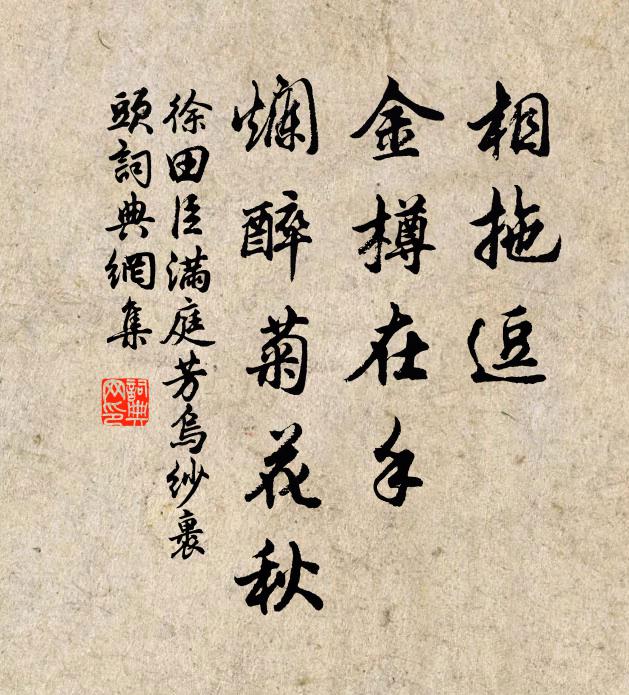 相拖逗
金樽在手
爛醉菊花秋
徐田臣滿庭芳烏紗裹
頭詞典網集
詞典网印